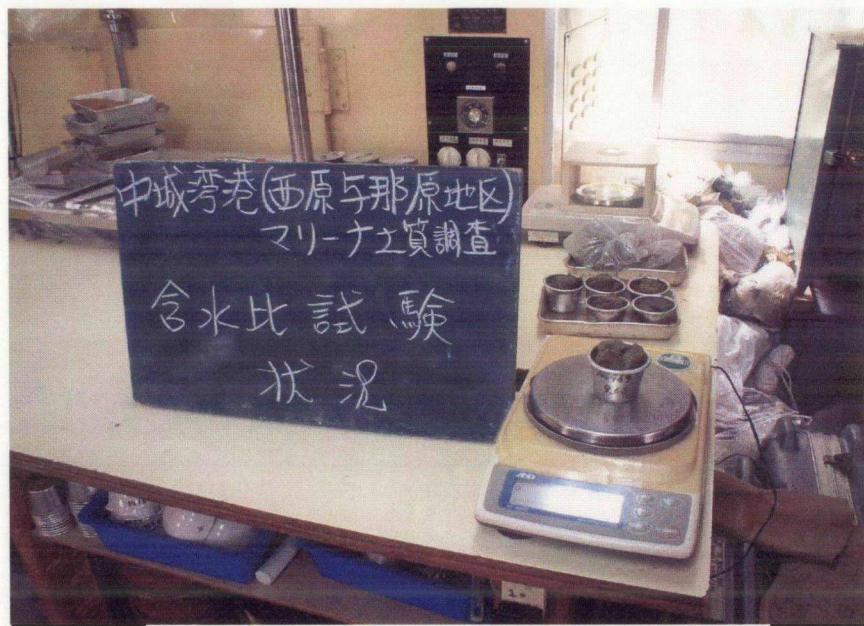 中城湾港(西原与那原地区)
マリーナ土質調査
含水比試験
状況
AND